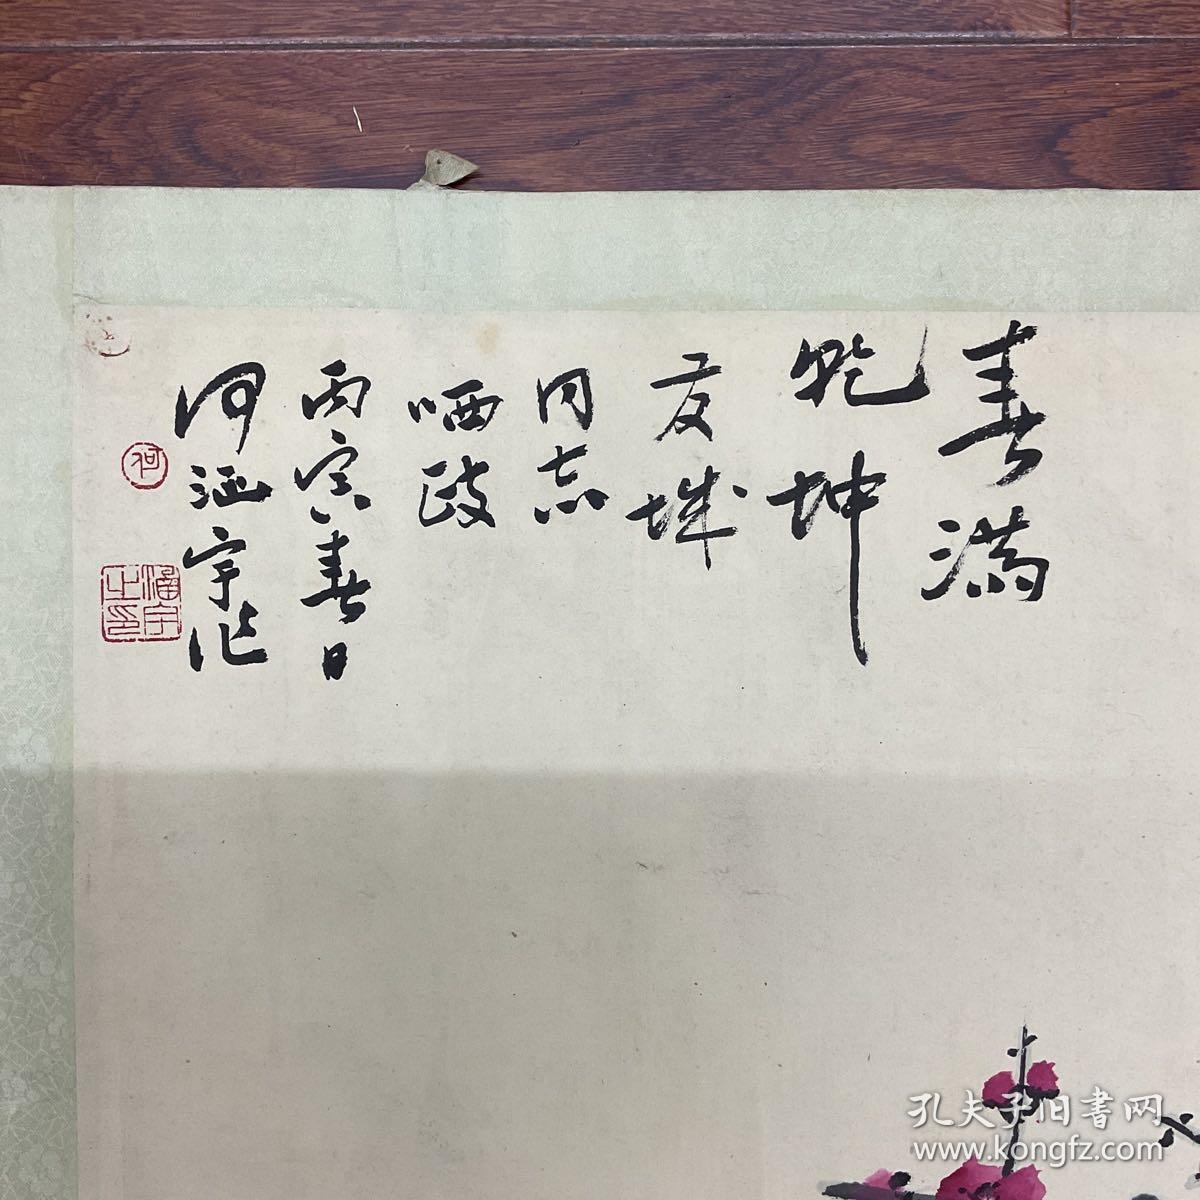 春满
乾坤
友城
同志
哂政
丙寅春日
何涵宇作
何
涵宇之印
孔夫子旧书网
www.kongfz.com